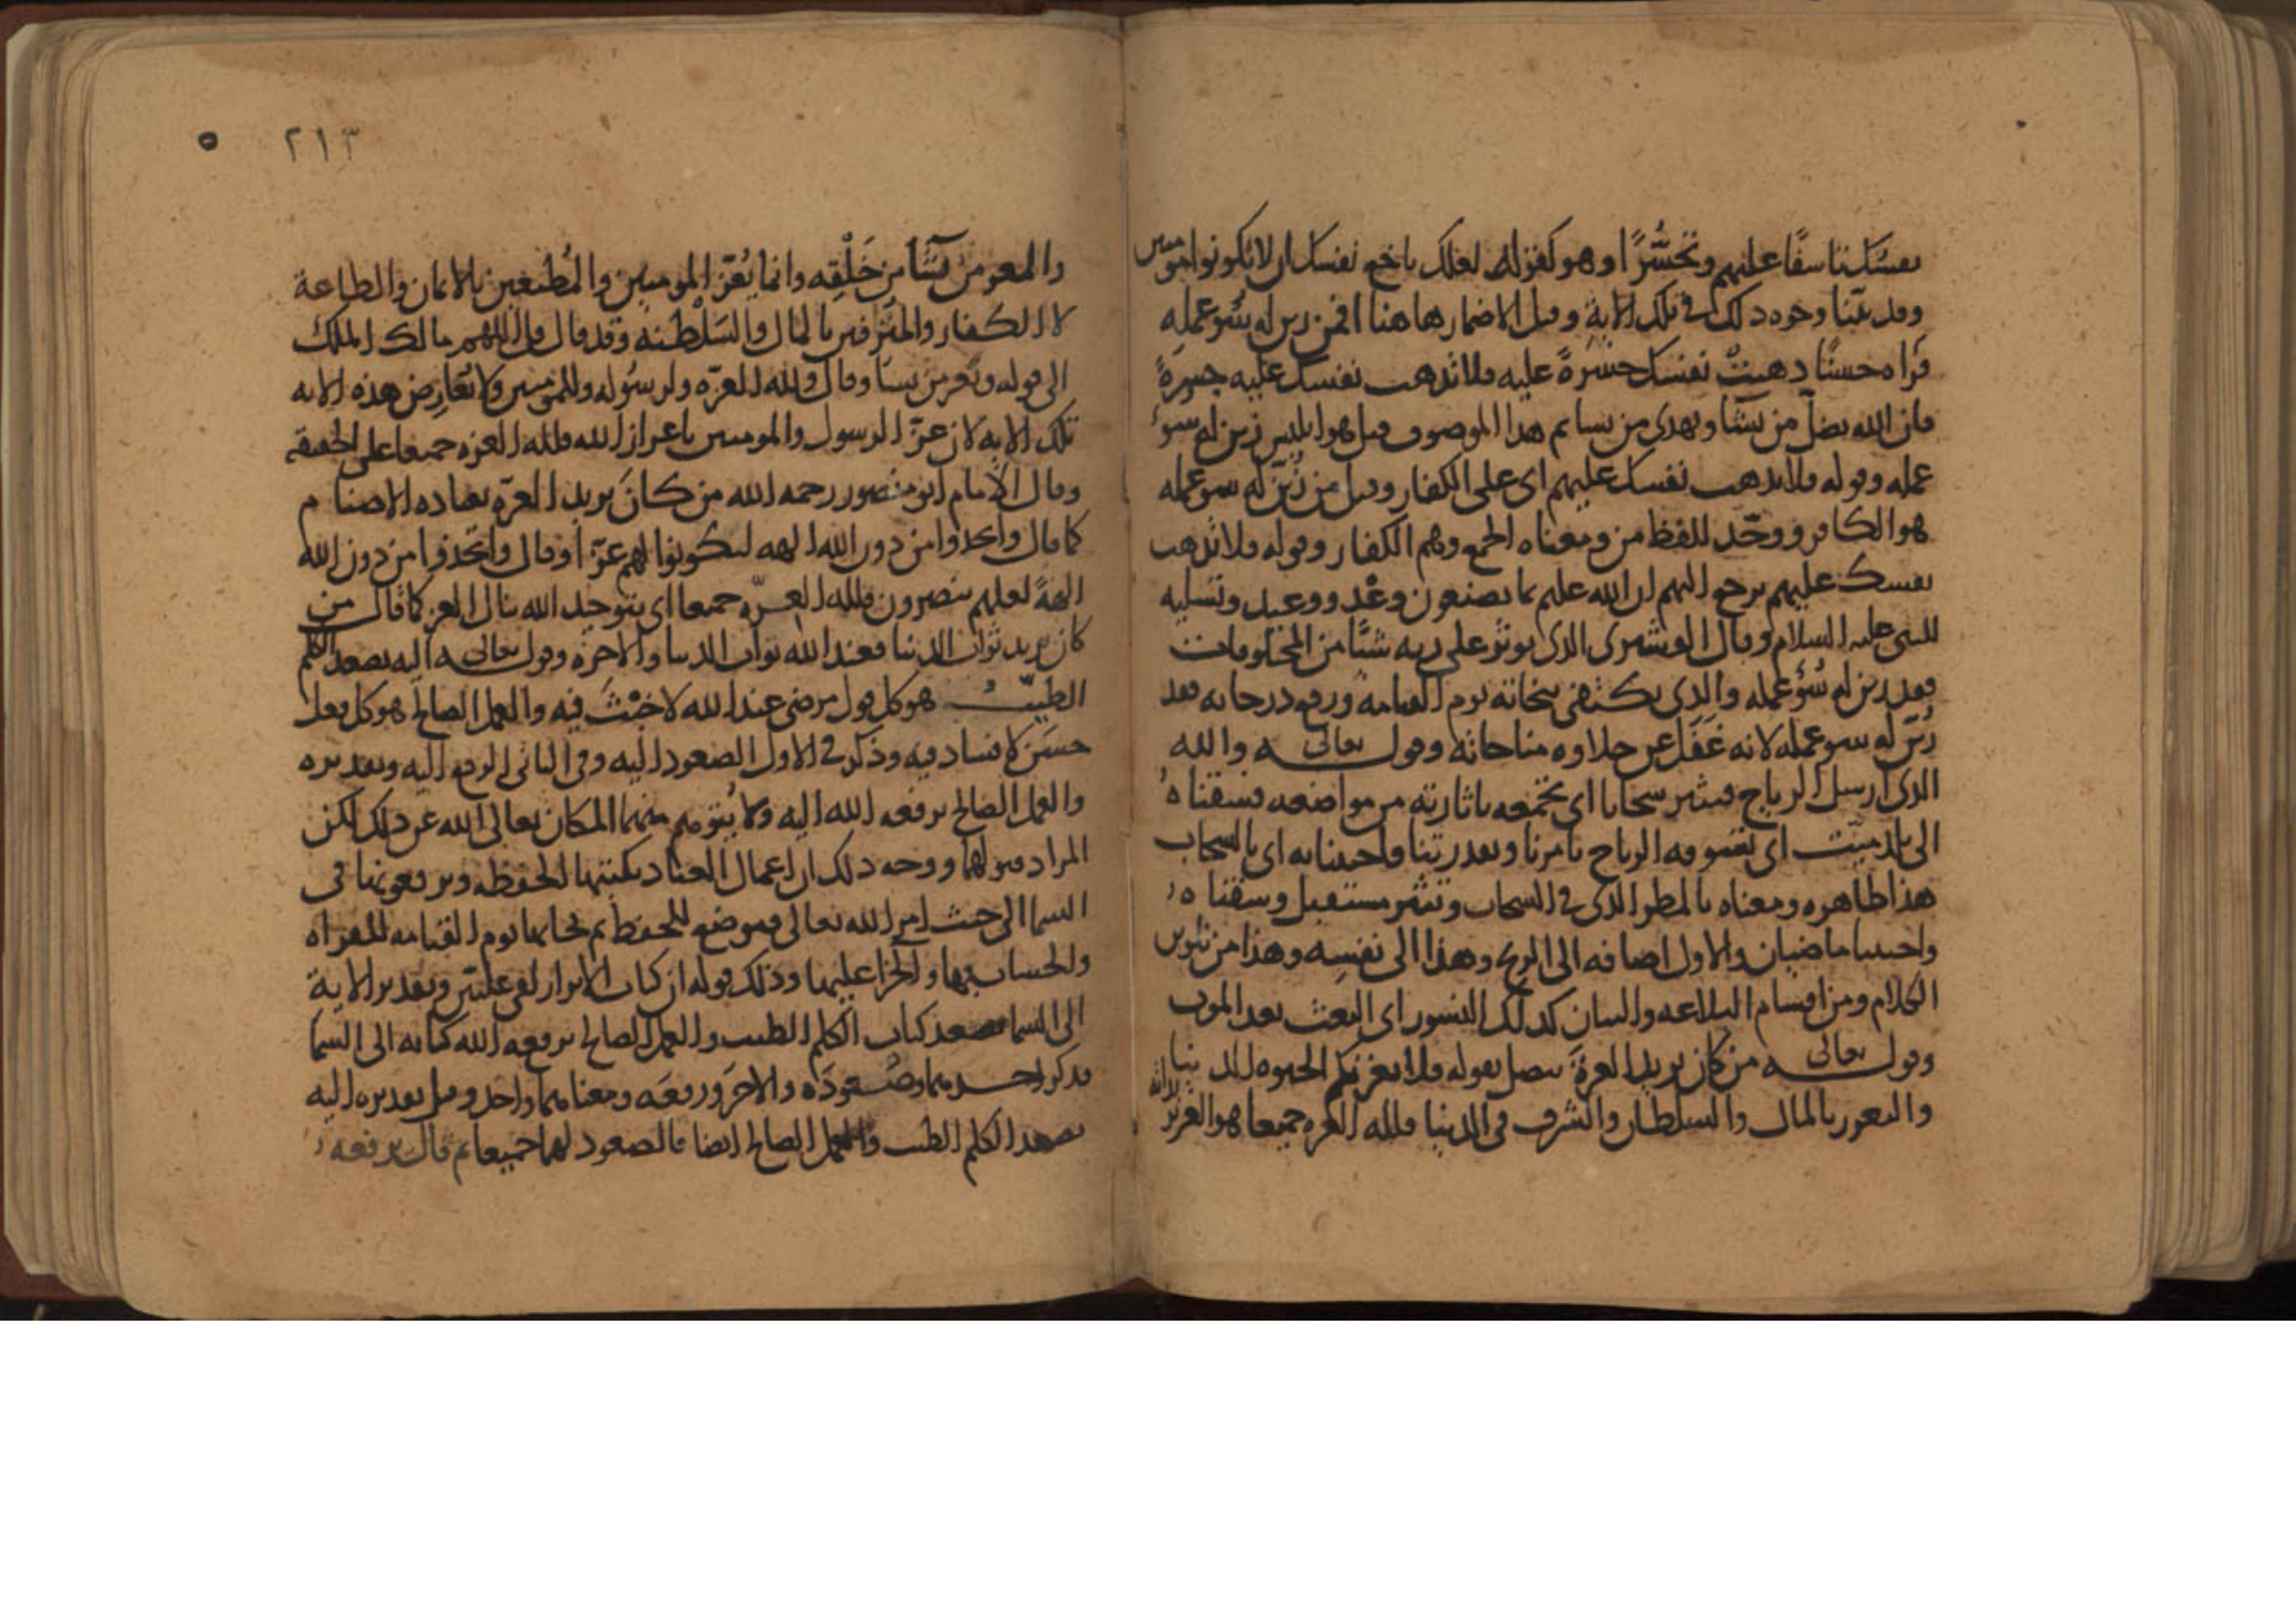 نفسك تاسفا عليهم وتحسُّرًا وهو كقوله لعلك باخع نفسك ان لا يكونوا مومنين
وقد بينا وجوه ذلك في تلك الاية وقيل الاضمار هاهنا افمن زين له سُوء عمله
فرآه حسنًا ذهبتْ نفسك حسرةً عليه فلا تذهب نفسك عليه حسرةً
فان الله يضل من يشا ويهدي من يشا ثم هذا الموصوف قيل هو ابليس زين له سوء
عمله وقوله فلا تذهب نفسك عليهم اي على الكفار وقيل من زُيّن له سوء عمله
هو الكافر ووحّد للفظ من ومعناه الجمع وهم الكفار وقوله فلا تذهب
نفسك عليهم يرجع اليهم ان الله عليم بما يصنعون وعْد ووعيد وتسليه
للنبي عليه السلام وقال القشيري الذي يوثر على ربه شيًا من المخلوقات
فقد زين له سُوء عمله والذي يكتفي بنجاته يوم القيامه ورفع درجاته فقد
زُيّن له سوء عمله لانه غَفَل عن حلاوه مناجاته وقوله تعالى والله
الذي ارسل الرياح فتثير سحابا اي تجمعه باثارته من مواضعه فسقناهُ
الى بلد ميّت اي تسوقه الرياح بامرنا وبقدرتنا فاحيينا به اي بالسحاب
هذا ظاهره ومعناه بالمطر الذي في السحاب وتثير مستقبل وسقناه
واحيينا ماضيان والاول اضافه الى الريح وهذا الى نفسِه وهذا من تلوين
الكلام ومن اقسام البلاغه والبيان كذلك النشور اي البعث بعد الموت
وقوله تعالى من كان يريد العزة يتصل بقوله فلا تغرنكم الحيوه الدنيا
والتعزز بالمال والسلطان والشرف في الدنيا فلله العزه جميعا هو العزيز
٢١٣
والمعز من يشآ من خَلْقِه وانما يُعزّ المومنين والمُطيعين بالايمان والطاعة
لا الكفار والمترفين بالمال والسَلْطنه وقد قال قل اللهم مالك الملك
الى قوله وتعز من تشا وقال ولله العزّه ولرسُوله وللمومنين ولا تُعارِض هذه الايه
تلك الايه لان عزّ الرسول والمومنين باعزاز الله فلله العزه جميعا على الحقيقه
وقال الامام ابو منصور رحمه الله من كان يريد العزّه بعباده الاصنام
كما قال واتخذوا من دون الله الهه ليكونوا لهم عزّا وقال واتخذوا من دون الله
الهةً لعلهم ينصرون فلله العزّه جميعا اي بتوحيد الله ينال العز كما قال من
كان يريد ثواب الدنيا فعند الله ثواب الدنيا والاخرة وقوله تعالى اليه يصعد الكلم
الطيّبُ هو كل قول مرضي عند الله لا خبْثَ فيه والعمل الصالح هو كل فعل
حسَن لا فساد فيه وذكر في الاول الصعود اليه وفي الثاني الرفع اليه وتقديره
والعمل الصالح يرفعه الله اليه ولا يُتوهم منهما المكان تعالى الله عن ذلك لكن
المراد قبولهما ووجه ذلك ان اعمال العباد يكتبها الحفظه ويرفعونها في
السما الى حيث امر الله تعالى فموضع للحفظ ثم يجا بها يوم القيامه للقراه
والحساب بها والجزا عليها وذلك قوله ان كتاب الابرار لفي عليّين وتقدير الاية
الى السما يصعد كتاب الكلم الطيب والعمل الصالح يرفعه الله كتابه الى السما
فذكر احدهما وصُعودَه والاخَر ورفعَه ومعناهما واحد وقيل تقديره اليه
يصعد الكلم الطيب والعمل الصالح ايضا فالصعود لهما جميعا ثم قال يرفعه